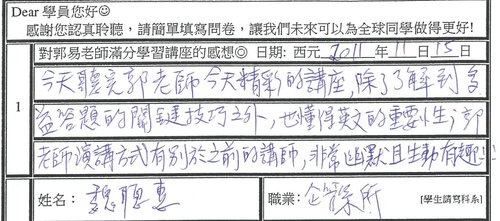 Dear 學員您好☺
感謝您認真聆聽，請簡單填寫問卷，讓我們未來可以為全球同學做得更好!
對郭易老師滿分學習講座的感想☺ 日期: 西元 2011 年 11 月 15 日
1
今天聽完郭老師今天精彩的講座,除了了解到多
益答題的關鍵技巧之外，也懂得英文的重要性;郭
老師演講方式有別於之前的講師,非常幽默且生動有趣!!
姓名： 魏聰惠 職業： 企管所 [學生請寫科系]